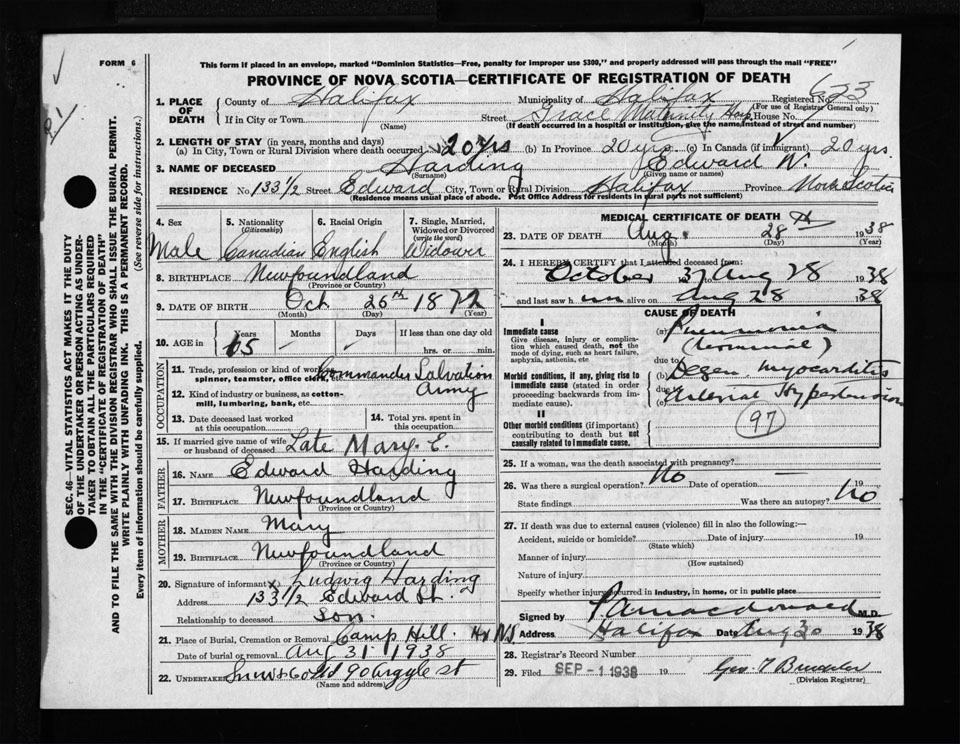 FORM 6
This form if placed in an envelope, marked "Dominion Statistics—Free, penalty for improper use $300," and properly addressed will pass through the mail "FREE"
PROVINCE OF NOVA SCOTIA—CERTIFICATE OF REGISTRATION OF DEATH
SEC. 46—VITAL STATISTICS ACT MAKES IT THE DUTY
OF THE UNDERTAKER OR PERSON ACTING AS UNDER-
TAKER TO OBTAIN ALL THE PARTICULARS REQUIRED
IN THE "CERTIFICATE OF REGISTRATION OF DEATH"
AND TO FILE THE SAME WITH THE DIVISION REGISTRAR WHO SHALL ISSUE THE BURIAL PERMIT.
WRITE PLAINLY WITH UNFADING INK. THIS IS A PERMANENT RECORD.
Every item of information should be carefully supplied. (See reverse side for instructions.)
1. PLACE OF DEATH
County of Halifax Municipality of Halifax Registered No. 623
(For use of Registrar General only)
If in City or Town (Name) Street Grace Maternity Hosp. House No.
(If death occurred in a hospital or institution, give the name instead of street and number)
2. LENGTH OF STAY (in years, months and days)
(a) In City, Town or Rural Division where death occurred 20 yrs (b) In Province 20 yrs. (c) In Canada (if immigrant) 20 yrs.
3. NAME OF DECEASED Harding Edward W.
(Surname) (Given name or names)
RESIDENCE No. 133 1/2 Street Edward City, Town or Rural Division Halifax Province Nova Scotia
(Residence means usual place of abode. Post Office Address for residents in rural parts not sufficient)
4. Sex 5. Nationality (Citizenship) 6. Racial Origin 7. Single, Married, Widowed or Divorced (write the word)
Male Canadian English Widower
8. BIRTHPLACE Newfoundland
(Province or Country)
9. DATE OF BIRTH Oct 26th 1872
(Month) (Day) (Year)
10. AGE in Years Months Days If less than one day old
65 - - hrs. or min.
OCCUPATION
11. Trade, profession or kind of work as spinner, teamster, office clerk Commander Salvation
12. Kind of industry or business, as cotton-mill, lumbering, bank, etc. Army
13. Date deceased last worked at this occupation 14. Total yrs. spent in this occupation
15. If married give name of wife or husband of deceased Late Mary E.
FATHER
16. NAME Edward Harding
17. BIRTHPLACE Newfoundland
(Province or Country)
MOTHER
18. MAIDEN NAME Mary
19. BIRTHPLACE Newfoundland
(Province or Country)
20. Signature of informant x Ludwig Harding
Address 133 1/2 Edward St.
Relationship to deceased Son.
21. Place of Burial, Cremation or Removal Camp Hill. Hx N.S.
Date of burial or removal Aug 31 1938
22. UNDERTAKER Snow & Co Ltd 90 Argyle st
(Name and address)
MEDICAL CERTIFICATE OF DEATH
23. DATE OF DEATH Aug. 28th 1938
(Month) (Day) (Year)
24. I HEREBY CERTIFY that I attended deceased from:
October 37 Aug 28 1938
and last saw h im alive on Aug 28 1938
CAUSE OF DEATH
I
Immediate cause (a) Pneumonia
Give disease, injury or complication which caused death, not the mode of dying, such as heart failure, asphyxia, asthenia, etc (terminal)
due to
Morbid conditions, if any, giving rise to immediate cause (stated in order proceeding backwards from immediate cause). (b) Degen. myocarditis
due to
(c) Arterial Hypertension
II
Other morbid conditions (if important) contributing to death but not causally related to immediate cause. 97
25. If a woman, was the death associated with pregnancy? —
26. Was there a surgical operation? No Date of operation 19
State findings Was there an autopsy? No
27. If death was due to external causes (violence) fill in also the following:—
Accident, suicide or homicide? Date of injury 19
(State which)
Manner of injury
(How sustained)
Nature of injury
Specify whether injury occurred in industry, in home, or in public place
Signed by P A Macdonald M.D.
Address Halifax Date Aug 30 1938
28. Registrar's Record Number
29. Filed SEP -1 1938 19
(Division Registrar)